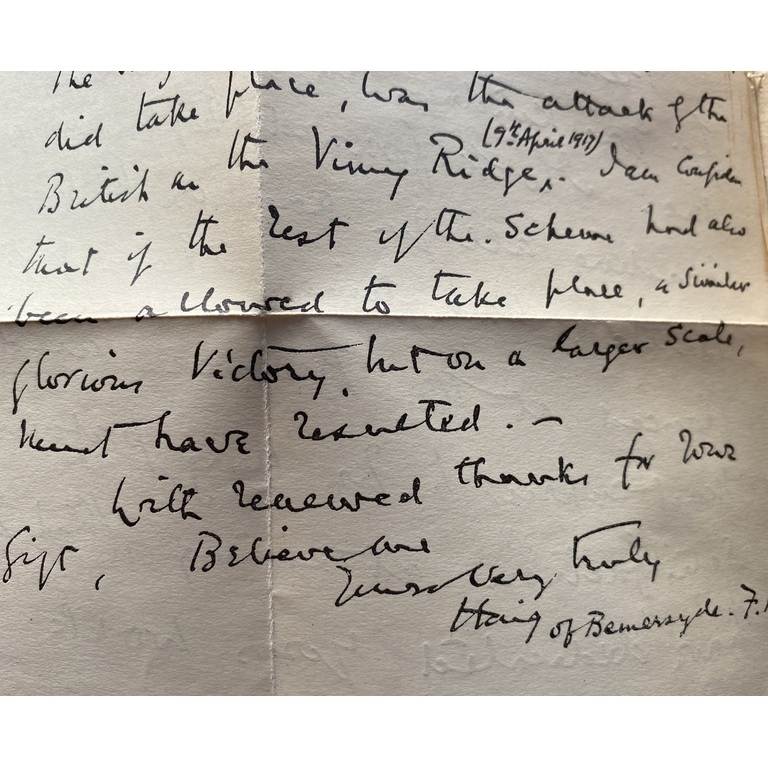 the
did take place, was the attack of the
(9th April 1917)
British on the Vimy Ridge,. I am confiden
that if the rest of the. Scheme had also
been allowed to take place, a similar
glorious Victory, but on a larger scale,
must have resulted. —
With renewed thanks for your
Gift, Believe me
Yours very truly
Haig of Bemersyde. F.